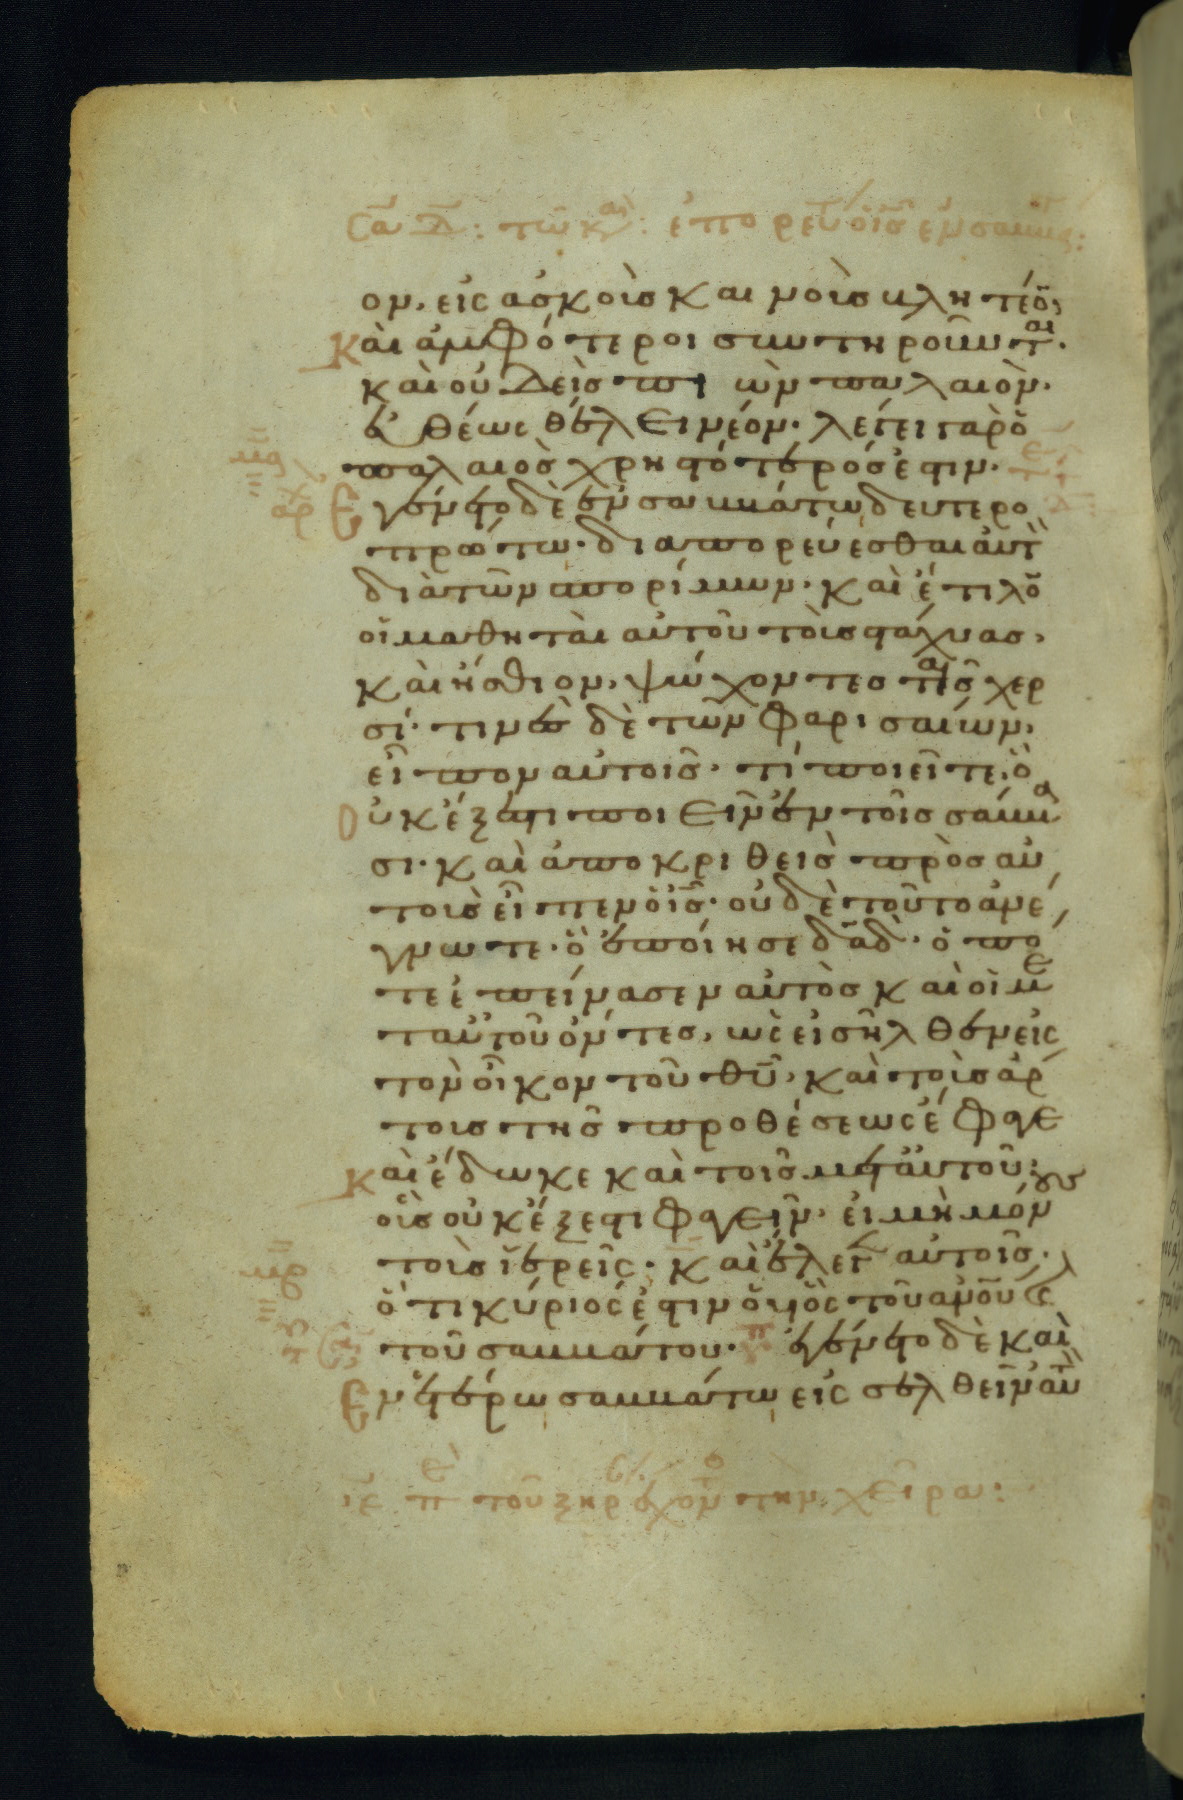 ον. εἰς ἀσκοὺς καινοὺς βλητέον,
Καὶ ἀμφότεροι συντηροῦνται.
καὶ οὐδεὶς πιὼν παλαιὸν.
εὐθέως θέλει νέον. λέγει γὰρ ὁ
παλαιὸς χρηστότερός ἐστιν.
Ἐγένετο δὲ ἐν σαββάτω δευτερο
πρώτω. διαπορεύεσθαι αὐτὸν
διὰ τῶν σπορίμων. καὶ ἔτιλλον
οἱ μαθηταὶ αὐτοῦ τοὺς στάχυας,
καὶ ἤσθιον, ψώχοντες ταῖς χερ
σί. τινὲς δὲ τῶν φαρισαίων,
εἶπον αὐτοῖς. τί ποιεῖτε ὃ
Οὐκ ἔξεστι ποιεῖν ἐν τοῖς σάββα
σι. καὶ ἀποκριθεὶς πρὸς αὐ
τοὺς εἶπεν ὁ ις. οὐδὲ τοῦτο ἀνέ
γνωτε. ὃ ἐποίησε δαδ. ὁπό
τε ἐπείνασεν αὐτὸς καὶ οἱ με
τ αὐτοῦ ὄντες, ὡς εἰσῆλθεν εἰς
τὸν οἶκον τοῦ θυ, καὶ τοὺς ἄρ
τους τῆς προθέσεως ἔφαγε
Καὶ ἔδωκε καὶ τοῖς μετ αὐτοῦ.
οὓς οὐκ ἔξεστι φαγεῖν. εἰ μὴ μόνους
τοὺς ἱερεῖς. καὶ ἔλεγεν αὐτοῖς.
ὅτι κύριός ἐστιν ὁ υἱὸς τοῦ ανου καὶ
τοῦ σαββάτου. ἐγένετο δὲ καὶ
Ἐν ἑτέρω σαββάτω εἰσελθεῖν αὐτὸν